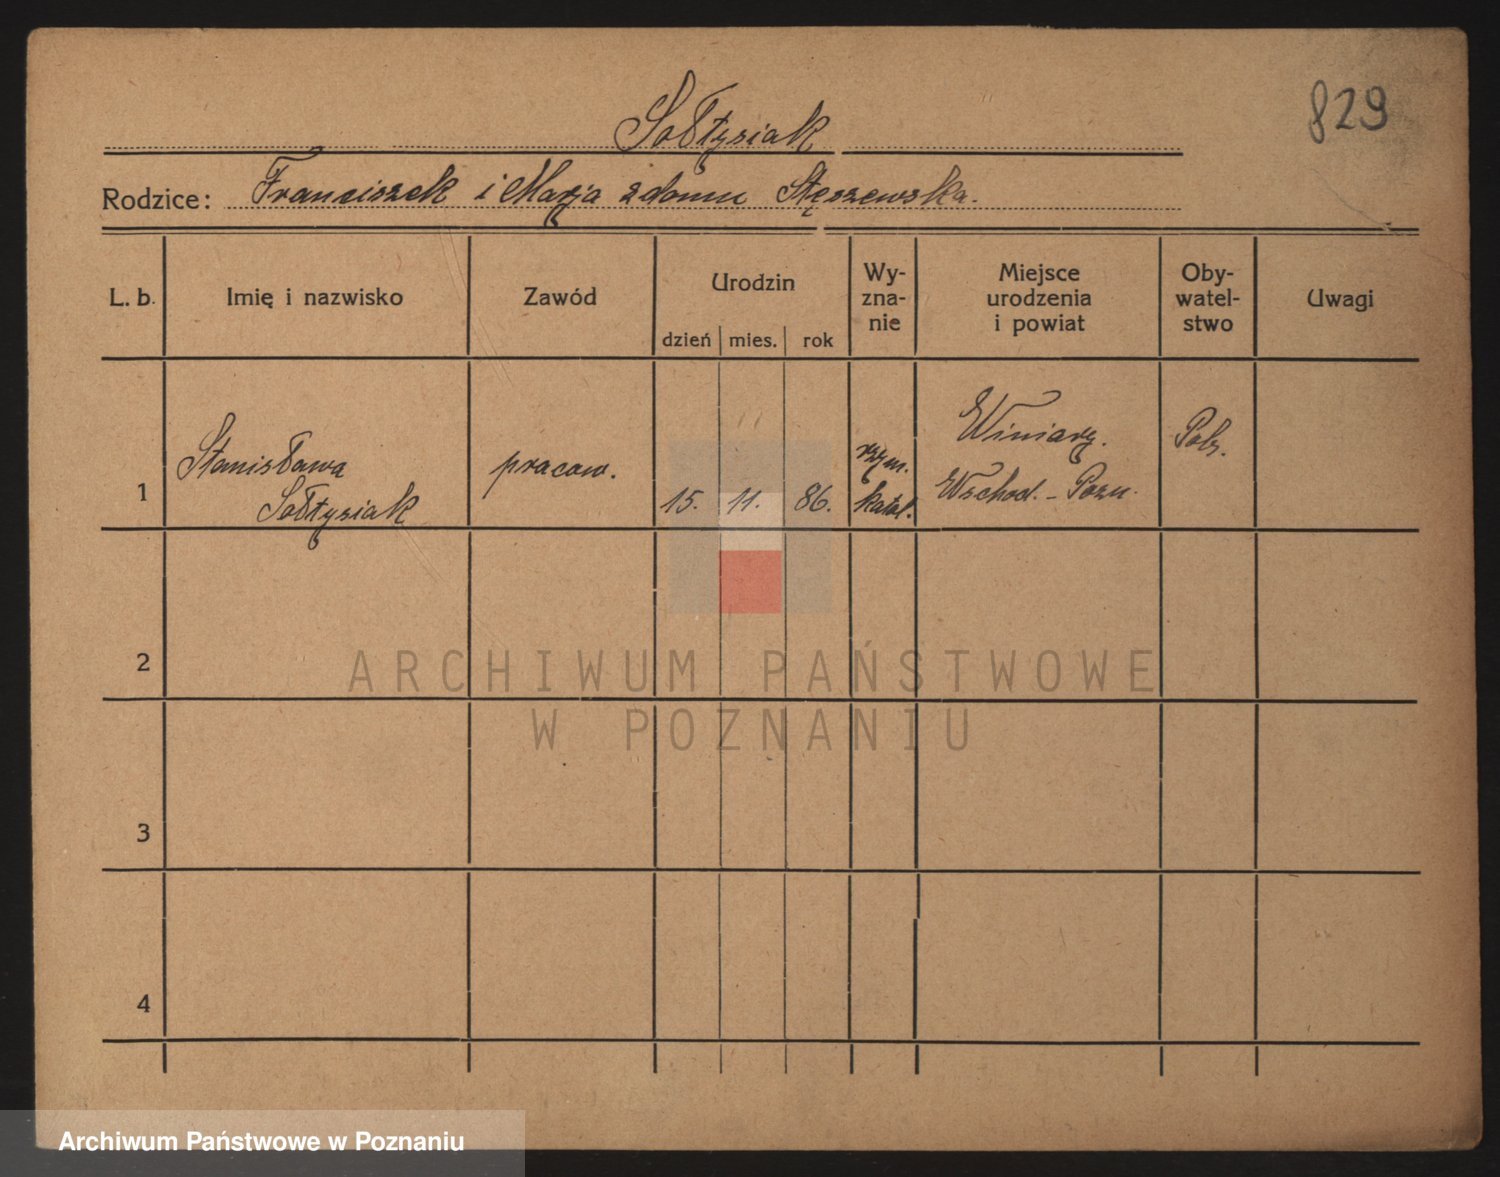 829
Sołtysiak
Rodzice: Franciszek i Marja z domu Stęszewska.
L. b. Imię i nazwisko Zawód Urodzin Wy-zna-nie Miejsce urodzenia i powiat Oby-watel-stwo Uwagi
dzień mies. rok
1 Stanisława Sołtysiak pracow. 15. 11. 86. rzym. katol. Winiary. Wschod. - Pozn. Pols.
2
ARCHIWUM PAŃSTWOWE
W POZNANIU
3
4
Archiwum Państwowe w Poznaniu